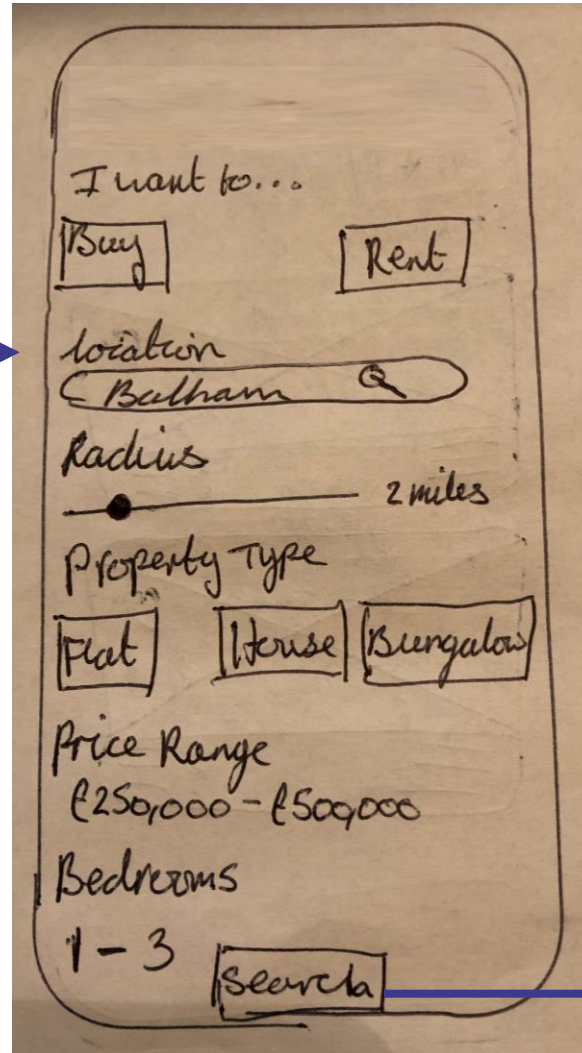 I want to...
Buy Rent
location
Balham
Radius
2 miles
Property Type
Flat House Bungalow
Price Range
£250,000 - £500,000
Bedrooms
1 - 3
Search